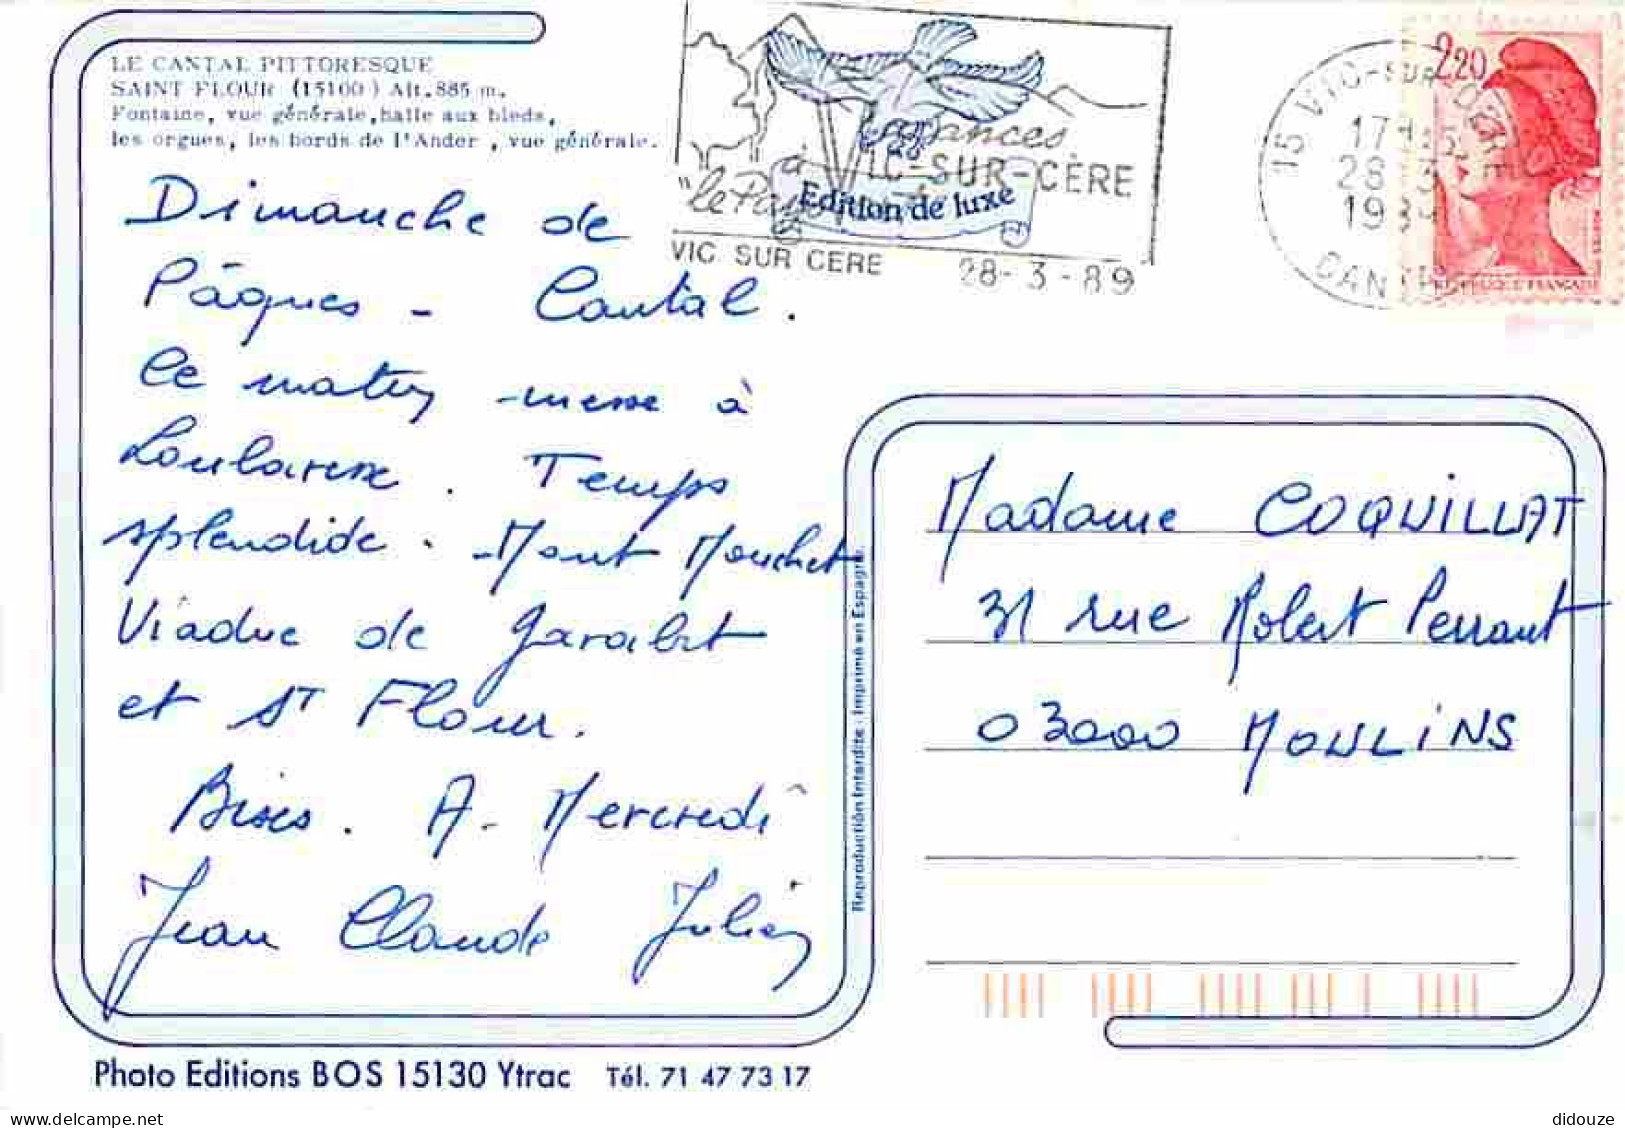 LE CANTAL PITTORESQUE
SAINT FLOUR (15100) Alt. 885 m.
Fontaine, vue générale, halle aux bleds,
les orgues, les bords de l'Ander, vue générale.
Dimanche de
Pâques - Cantal.
Ce matin messe à
Loubaresse. Temps
splendide. - Mont Mouchet
Viaduc de Garabit
et ST Flour.
Bises. A - Mercredi
Jean Claude Julien
vacances
à VIC-SUR-CÈRE
"le Pays
Edition de luxe
VIC SUR CERE 28-3-89
15 VIC-SUR-CERE
17H
28 3
1989
CANTAL
2,20
REPUBLIQUE FRANÇAISE
Reproduction Interdite - Imprimé en Espagne.
Madame COQUILLAT
31 rue Robert Perraut
03000 MOULINS
Photo Editions BOS 15130 Ytrac Tél. 71 47 73 17
www.delcampe.net
didouze